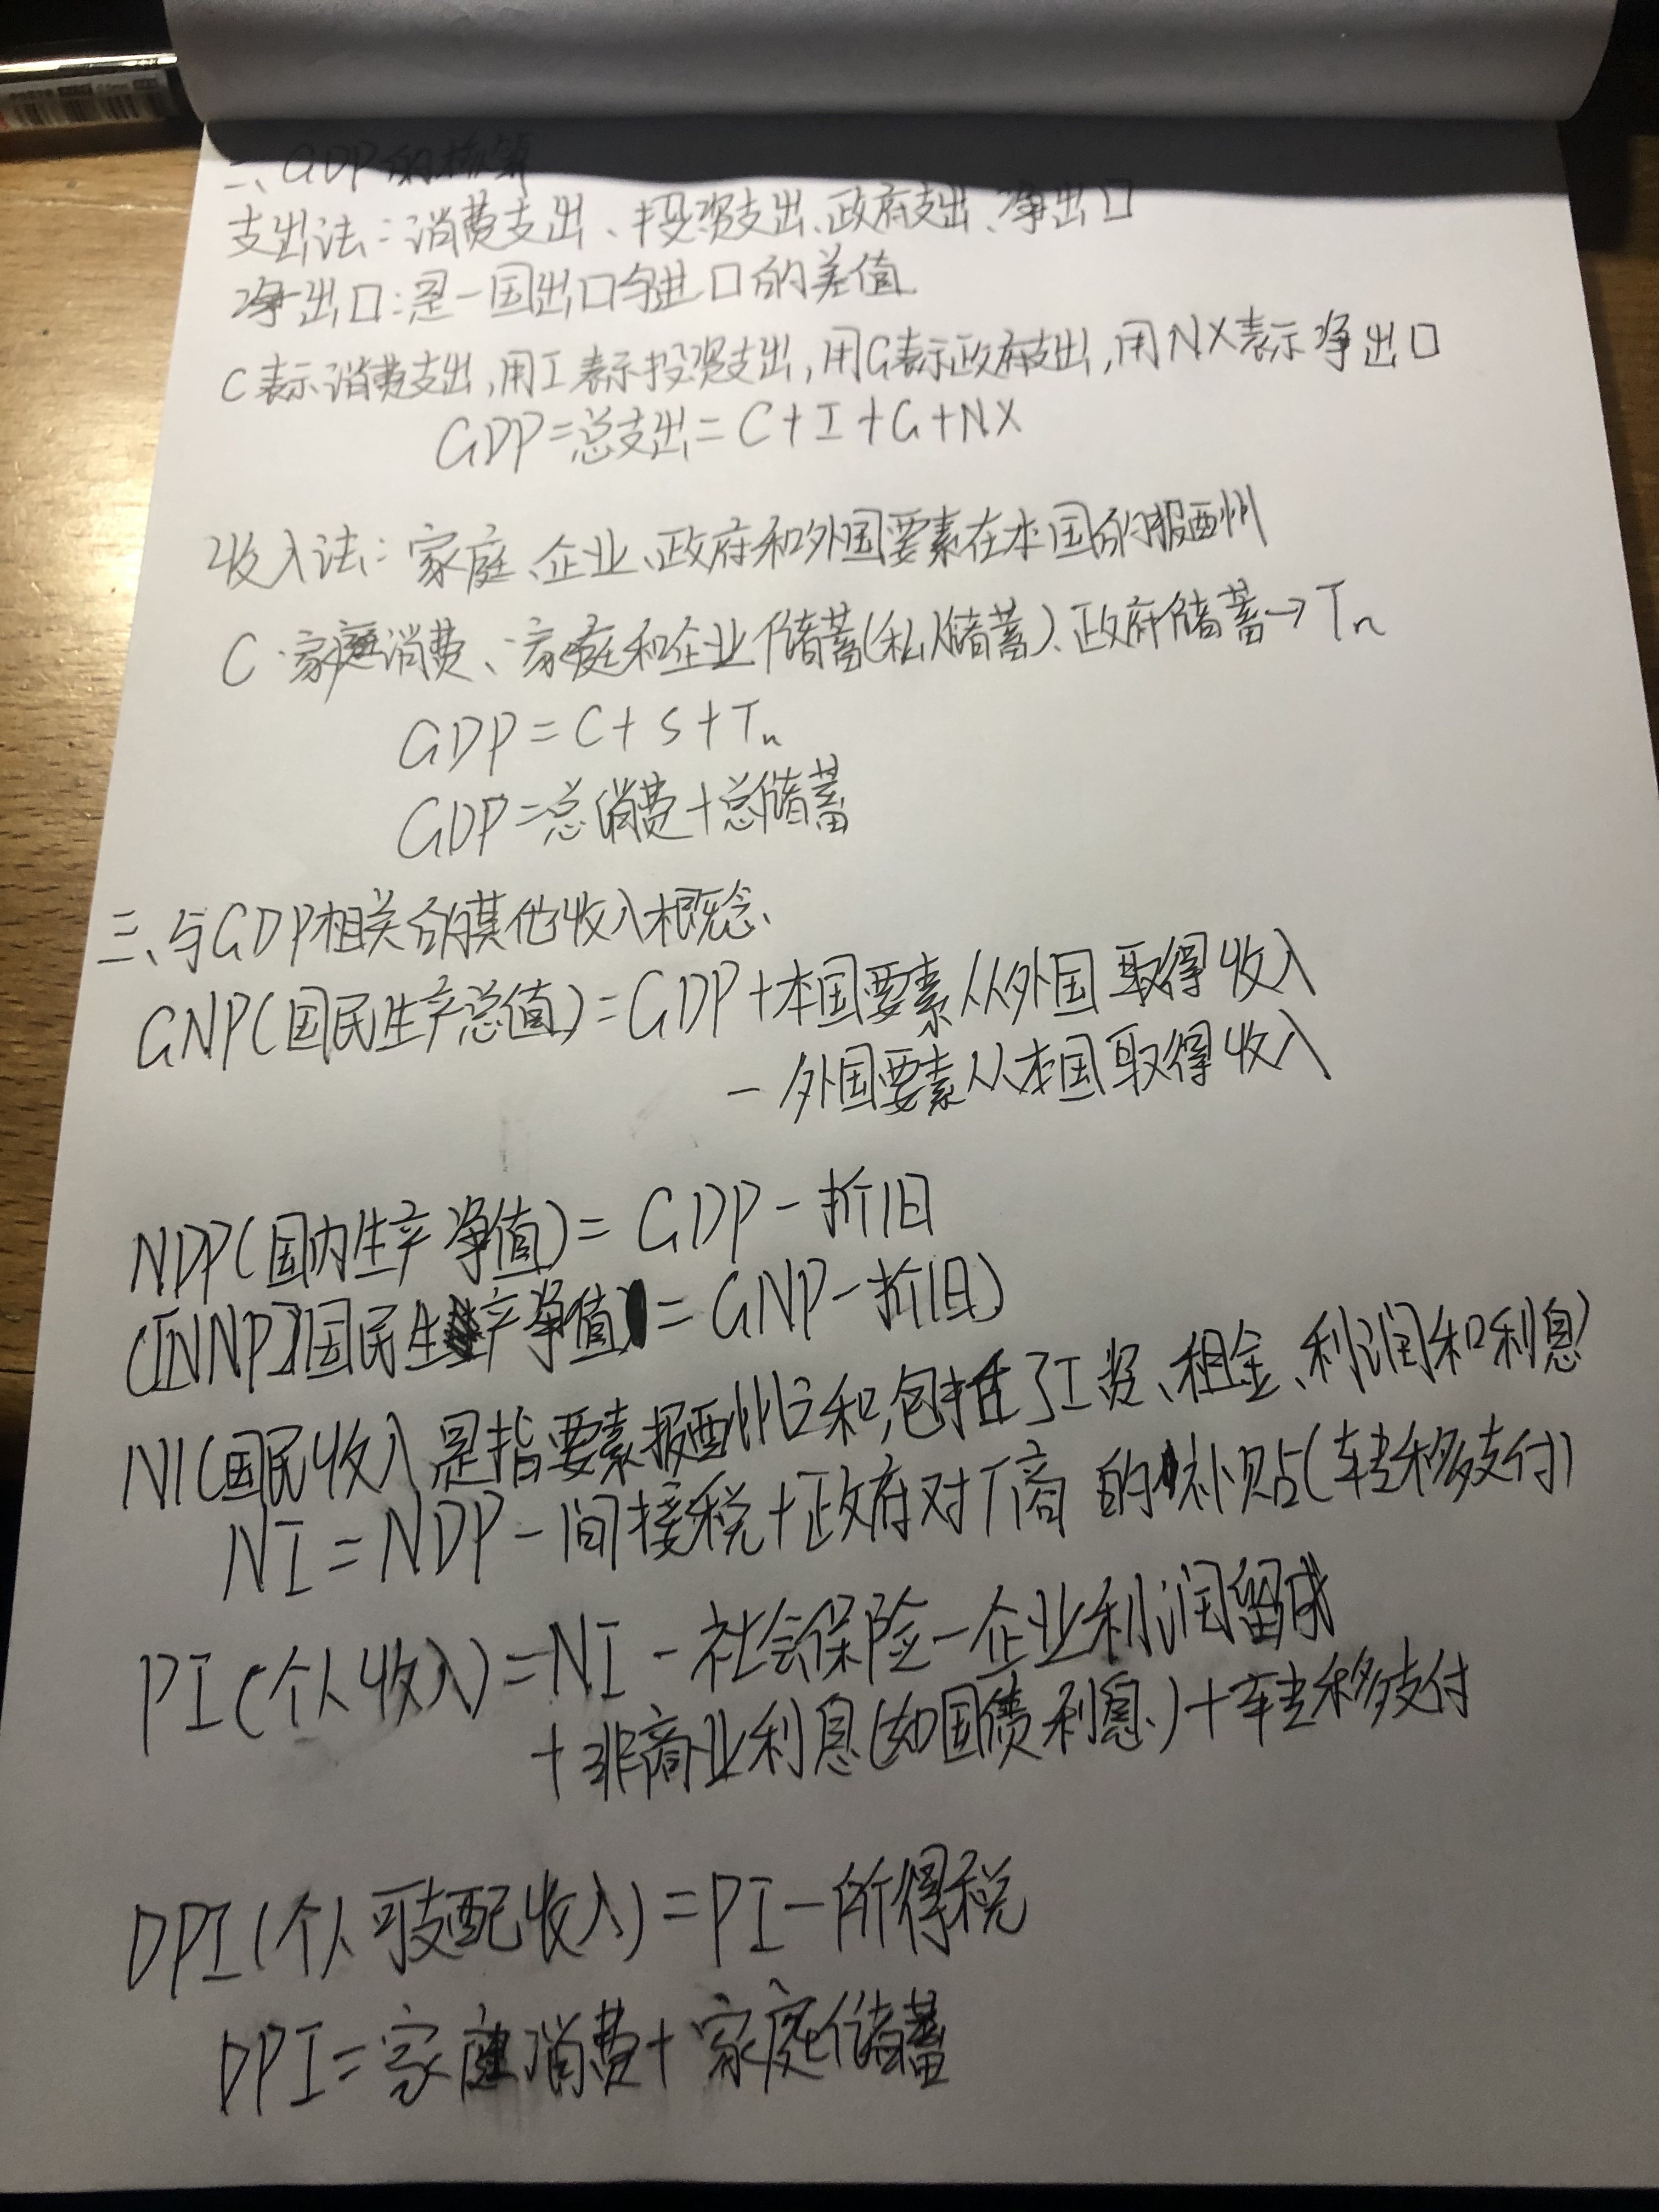 二、GDP的核算
支出法：消费支出、投资支出、政府支出、净出口
净出口：是一国出口与进口的差值
C表示消费支出,用I表示投资支出,用G表示政府支出,用NX表示净出口
GDP=总支出=C+I+G+NX
收入法：家庭、企业、政府和外国要素在本国的报酬
C 家庭消费、家庭和企业储蓄(私人储蓄)、政府储蓄→Tn
GDP=C+S+Tn
GDP=总消费+总储蓄
三、与GDP相关的其他收入概念、
GNP(国民生产总值)=GDP+本国要素从外国取得收入
-外国要素从本国取得收入
NDP(国内生产净值)=GDP-折旧
([NNP]国民生产净值=GNP-折旧)
NI(国民收入是指要素报酬之和,包括了工资、租金、利润和利息
NI=NDP-间接税+政府对厂商的补贴(转移支付)
PI(个人收入)=NI-社会保险-企业利润留成
+非商业利息(如国债利息)+转移支付
DPI(个人可支配收入)=PI-所得税
DPI=家庭消费+家庭储蓄